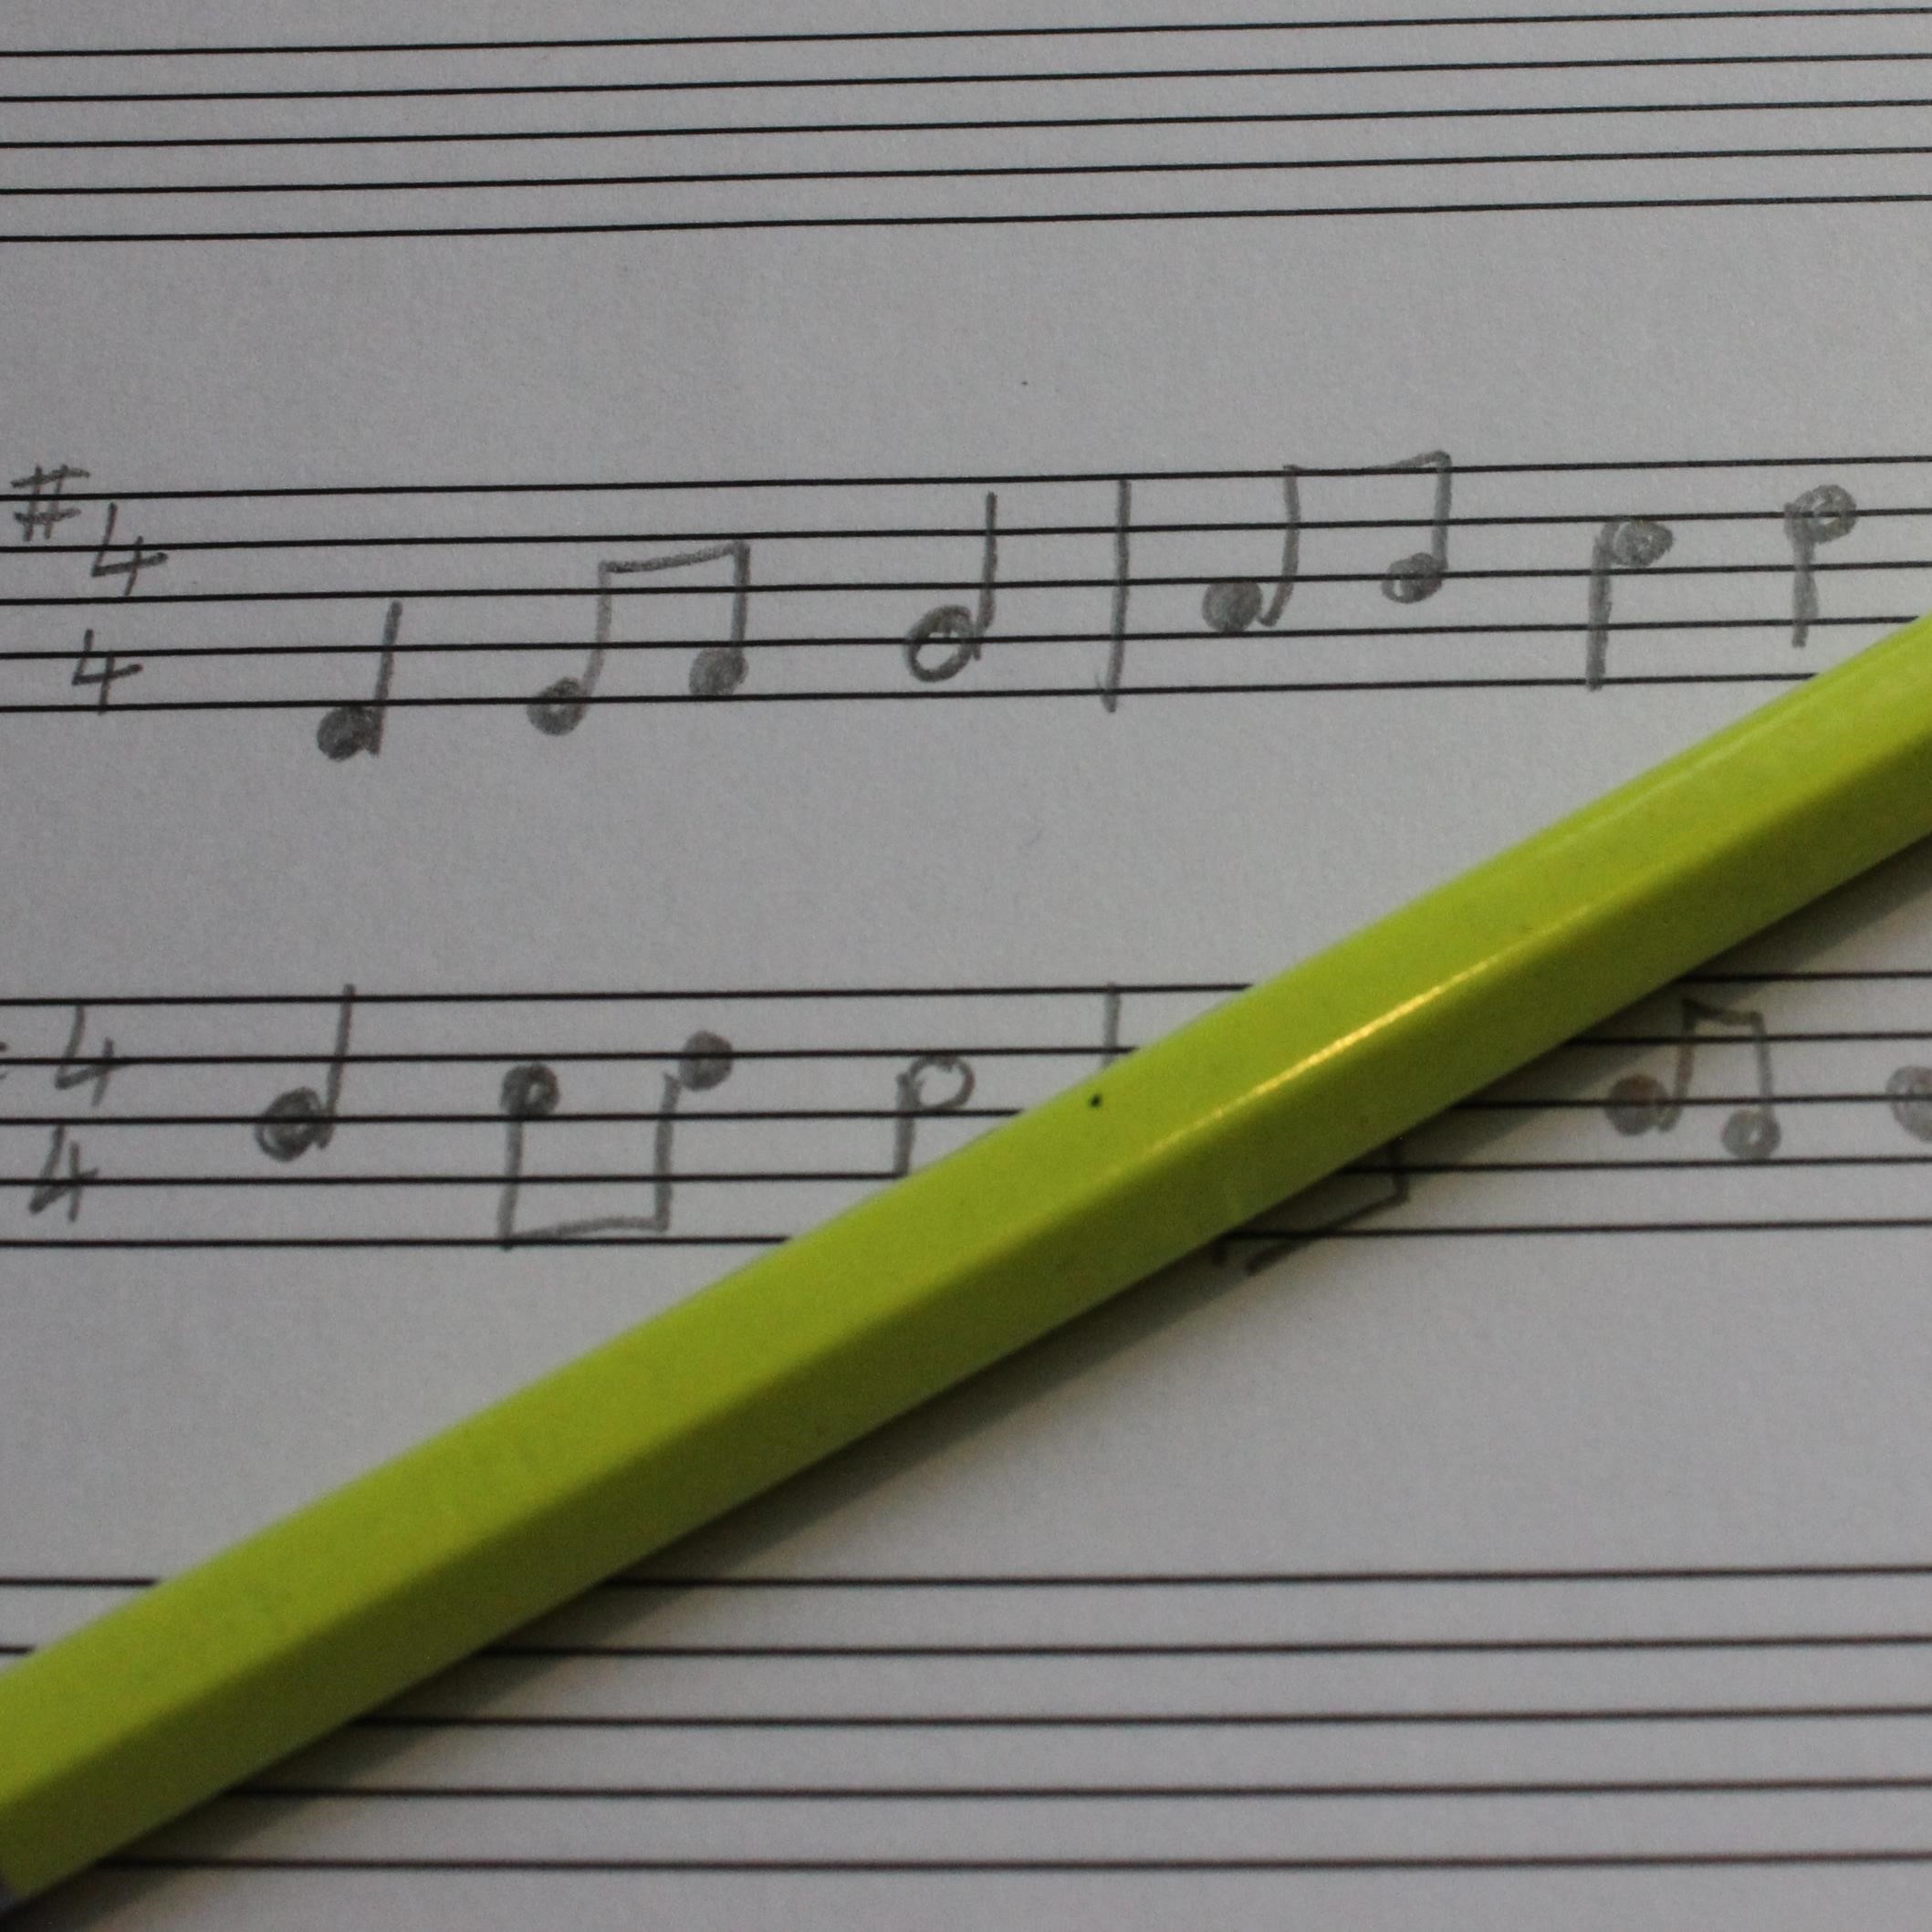 # 4
4
4
4